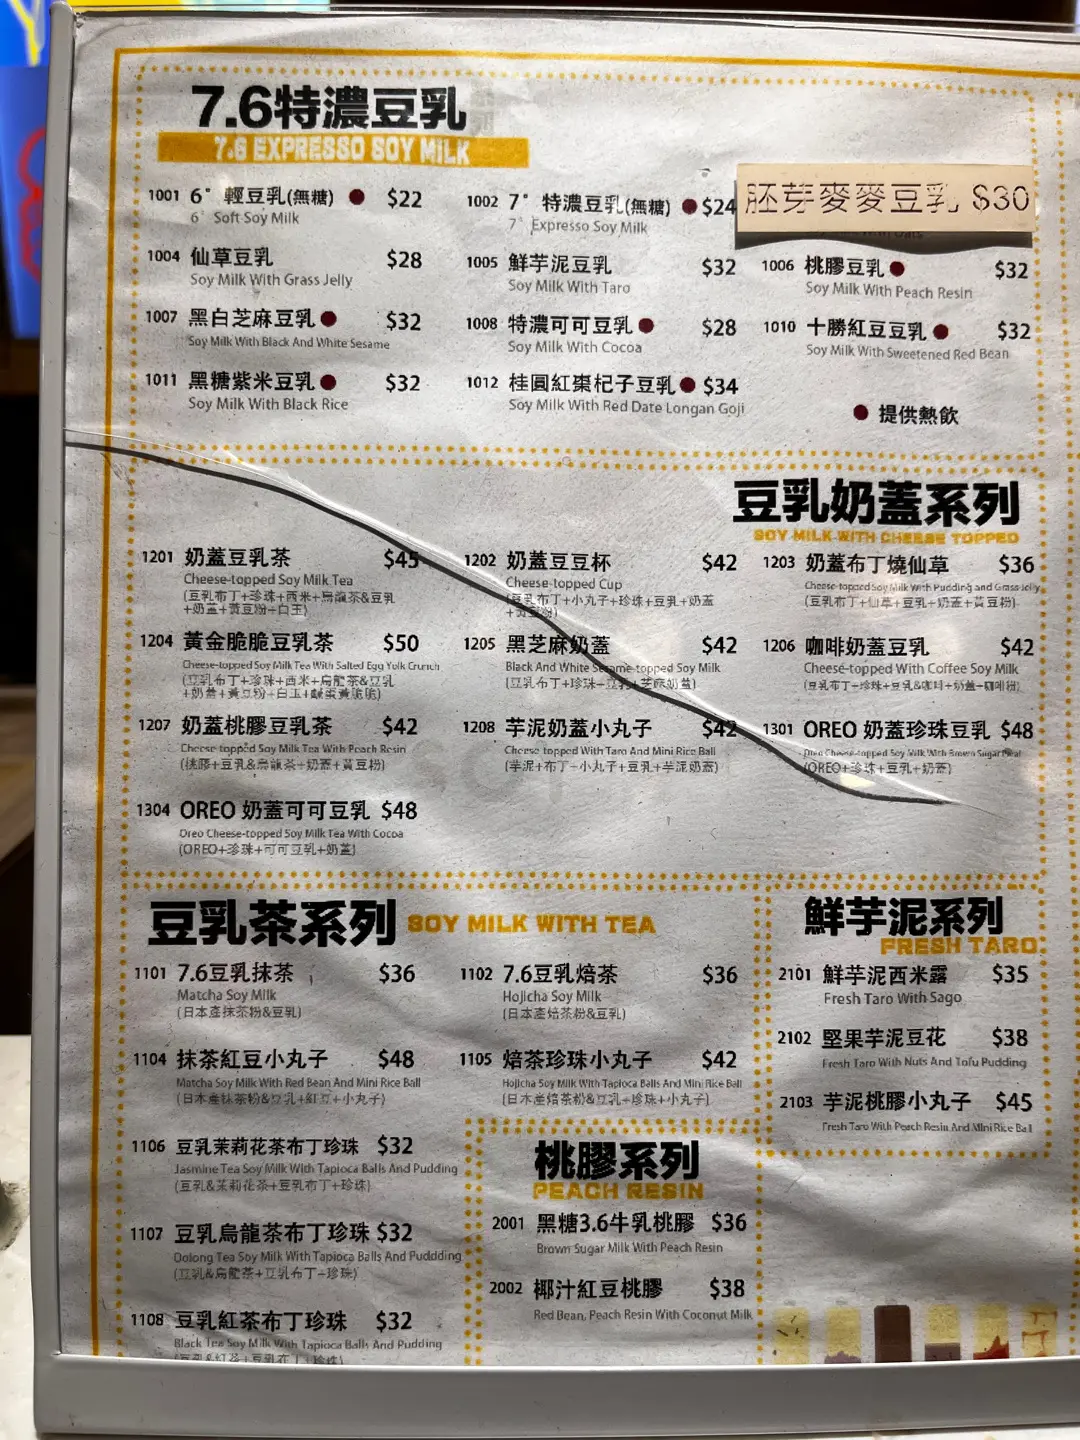 7.6特濃豆乳
7.6 EXPRESSO SOY MILK
1001 6° 輕豆乳(無糖) $22
6° Soft Soy Milk
1002 7° 特濃豆乳(無糖) $24
7° Expresso Soy Milk
胚芽麥麥豆乳 $30
1004 仙草豆乳 $28
Soy Milk With Grass Jelly
1005 鮮芋泥豆乳 $32
Soy Milk With Taro
1006 桃膠豆乳 $32
Soy Milk With Peach Resin
1007 黑白芝麻豆乳 $32
Soy Milk With Black And White Sesame
1008 特濃可可豆乳 $28
Soy Milk With Cocoa
1010 十勝紅豆豆乳 $32
Soy Milk With Sweetened Red Bean
1011 黑糖紫米豆乳 $32
Soy Milk With Black Rice
1012 桂圓紅棗杞子豆乳 $34
Soy Milk With Red Date Longan Goji
提供熱飲
豆乳奶蓋系列
SOY MILK WITH CHEESE TOPPED
1201 奶蓋豆乳茶 $45
Cheese-topped Soy Milk Tea
(豆乳布丁+珍珠+西米+烏龍茶&豆乳
+奶蓋+黃豆粉+白玉)
1202 奶蓋豆豆杯 $42
Cheese-topped Cup
(豆乳布丁+小丸子+珍珠+豆乳+奶蓋
+黃豆粉)
1203 奶蓋布丁燒仙草 $36
Cheese-topped Soy Milk With Pudding and Grass Jelly
(豆乳布丁+仙草+豆乳+奶蓋+黃豆粉)
1204 黃金脆脆豆乳茶 $50
Cheese-topped Soy Milk Tea With Salted Egg Yolk Crunch
(豆乳布丁+珍珠+西米+烏龍茶&豆乳
+奶蓋+黃豆粉+白玉+鹹蛋黃脆脆)
1205 黑芝麻奶蓋 $42
Black And White Sesame-topped Soy Milk
(豆乳布丁+珍珠+豆乳+芝麻奶蓋)
1206 咖啡奶蓋豆乳 $42
Cheese-topped With Coffee Soy Milk
(豆乳布丁+珍珠+豆乳&咖啡+奶蓋+咖啡粉)
1207 奶蓋桃膠豆乳茶 $42
Cheese-topped Soy Milk Tea With Peach Resin
(桃膠+豆乳&烏龍茶+奶蓋+黃豆粉)
1208 芋泥奶蓋小丸子 $42
Cheese-topped With Taro And Mini Rice Ball
(芋泥+布丁+小丸子+豆乳+芋泥奶蓋)
1301 OREO 奶蓋珍珠豆乳 $48
Oreo Cheese-topped Soy Milk With Brown Sugar
(OREO+珍珠+豆乳+奶蓋)
1304 OREO 奶蓋可可豆乳 $48
Oreo Cheese-topped Soy Milk Tea With Cocoa
(OREO+珍珠+可可豆乳+奶蓋)
豆乳茶系列 SOY MILK WITH TEA
1101 7.6豆乳抹茶 $36
Matcha Soy Milk
(日本產抹茶粉&豆乳)
1102 7.6豆乳焙茶 $36
Hojicha Soy Milk
(日本產焙茶粉&豆乳)
1104 抹茶紅豆小丸子 $48
Matcha Soy Milk With Red Bean And Mini Rice Ball
(日本產抹茶粉&豆乳+紅豆+小丸子)
1105 焙茶珍珠小丸子 $42
Hojicha Soy Milk With Tapioca Balls And Mini Rice Ball
(日本產焙茶粉&豆乳+珍珠+小丸子)
1106 豆乳茉莉花茶布丁珍珠 $32
Jasmine Tea Soy Milk With Tapioca Balls And Pudding
(豆乳&茉莉花茶+豆乳布丁+珍珠)
1107 豆乳烏龍茶布丁珍珠 $32
Oolong Tea Soy Milk With Tapioca Balls And Puddding
(豆乳&烏龍茶+豆乳布丁+珍珠)
1108 豆乳紅茶布丁珍珠 $32
Black Tea Soy Milk With Tapioca Balls And Pudding
(豆乳&紅茶+豆乳布丁+珍珠)
鮮芋泥系列
FRESH TARO
2101 鮮芋泥西米露 $35
Fresh Taro With Sago
2102 堅果芋泥豆花 $38
Fresh Taro With Nuts And Tofu Pudding
2103 芋泥桃膠小丸子 $45
Fresh Taro With Peach Resin And Mini Rice Ball
桃膠系列
PEACH RESIN
2001 黑糖3.6牛乳桃膠 $36
Brown Sugar Milk With Peach Resin
2002 椰汁紅豆桃膠 $38
Red Bean, Peach Resin With Coconut Milk